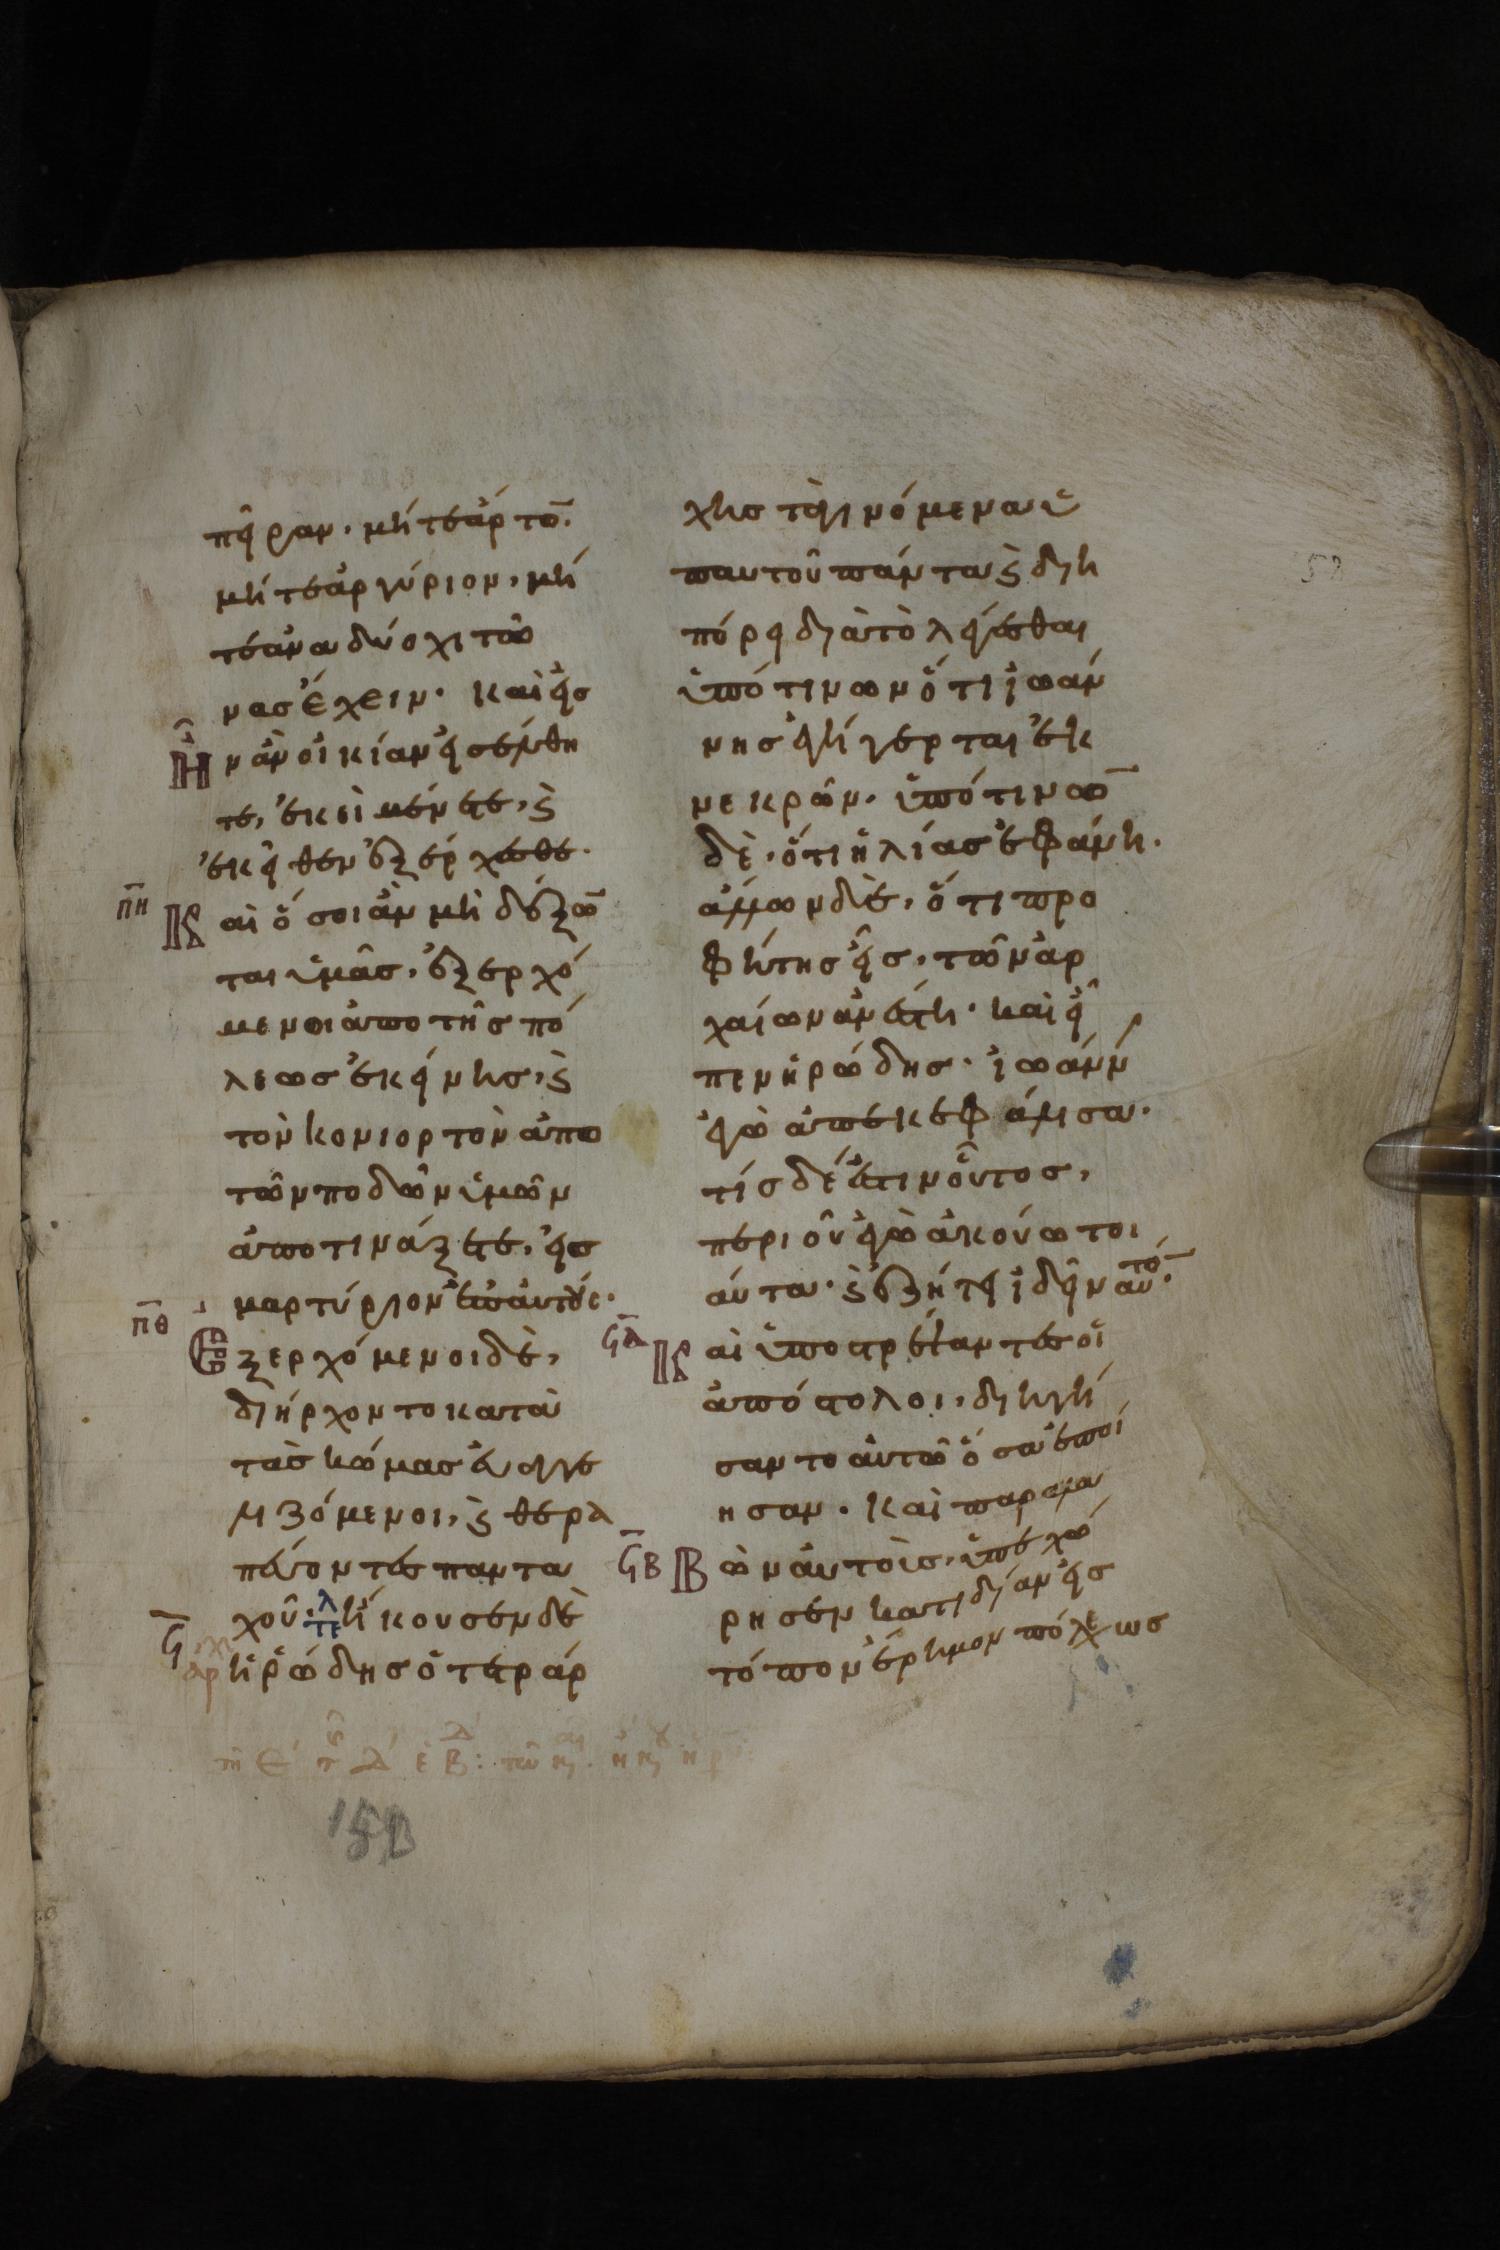 πεῖραν· μήτε ἄρτο̅·
μήτε ἀργύριον, μή
τε ἀνα δύο χιτῶ
νας ἔχειν· καὶ εἰς
ἣν ἂν οἰκίαν εἰσέλθη
τε, ἐκεῖ μένετε, ϗ
ἐκεῖθεν ἐξέρχεσθε·
π̅η̅
Καὶ ὅσοι ἂν μὴ δέξω̅
ται ὑμᾶς, ἐξερχό
μενοι ἀπο τῆς πό
λεως ἐκείνης, ϗ
τὸν κονιορτὸν ἀπο
τῶν ποδῶν ὑμῶν
ἀποτινάξετε, εἰς
μαρτύριον ἐπ αὐτούς·
π̅θ̅
Ἐξερχόμενοι δὲ,
διήρχοντο κατὰ
τὰς κώμας εὐαγγε
λιζόμενοι, ϗ θερα
πεύοντες παντα
χοῦ· τελ ἤκουσεν δὲ
ϟ̅
αρχ ἡρώδης ὁ τετράρ
χης τὰ γινόμενα ὑ
π αυτοῦ πάντα ϗ διη
πόρει διὰ τὸ λέγεσθαι
ὑπό τινων ὅτι ἰωάν
νης ἐγήγερται ἐκ
νεκρῶν· ὑπό τινω̅
δὲ, ὅτι ἠλίας ἐφάνη·
ἄλλων δὲ, ὅτι προ
φήτης εἷς, τῶν ἀρ
χαίων ἀνέστη· καὶ εἶ
πεν ἡρώδης· ἰωάνν
ἐγὼ ἀπεκεφάλισα·
τίς δέ ἐστιν οὗτος,
περι οὗ ἐγὼ ἀκούω τοι
αύτα· ϗ ἐζήτει ἰδεῖν αυτό̅·
ϟ̅α̅
Καὶ ὑποστρέψαντες οἱ
ἀπόστολοι, διηγή
σαντο αὐτῶ ὅσα ἐποί
ησαν· Καὶ παραλα
ϟ̅β̅
Βὼν αὐτοὺς, ὑπεχώ
ρησεν κατιδίαν εἰς
τόπον ἔρημον πόλεως
152
58